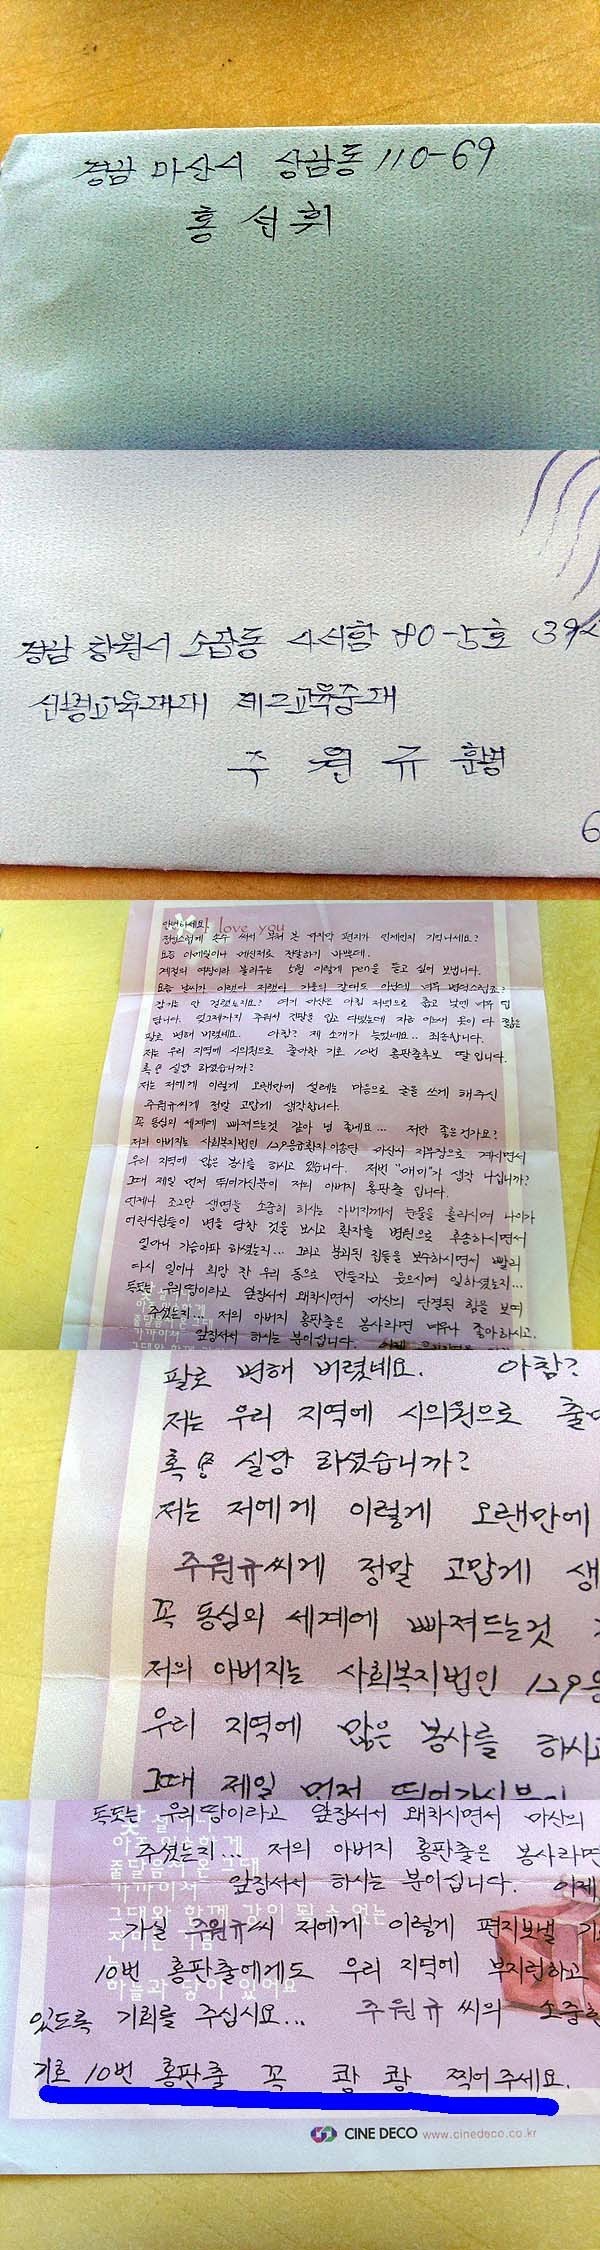 경남 마산시 상남동 110-69
홍 선 휘
경남 창원시 소답동 사서함 80-5호
신병교육대대 제2교육중대
주 원 규 훈병
6
I love you
안녕하세요
정성스럽게 손수 써서 부쳐 본 마지막 편지가 언제인지 기억나세요?
요즘 이메일이나 메신저로 전달하기 바쁜데.
계절의 여왕이라 불리우는 5월 이렇게 pen을 들고 실어 보냅니다.
요즘 날씨가 이랬다 저랬다 가을의 갈대도 아닌데 너무 변덕스럽죠?
감기는 안 걸렸는지요? 여기 마산은 아침 저녁으로 춥고 낮엔 너무 덥
답니다. 엊그제까지 추워서 긴팔을 입고 다녔는데 지금 어느새 옷이 다 짧은
팔로 변해 버렸네요. 아참? 제 소개가 늦었네요.. 죄송합니다.
저는 우리 지역에 시의원으로 출마한 기호 10번 홍판출후보 딸입니다.
혹 실망 하셨습니까?
저는 저에게 이렇게 오랜만에 설레는 마음으로 글을 쓰게 해주신
주원규씨게 정말 고맙게 생각합니다.
꼭 동심의 세계에 빠져드는것 같아 넘 좋네요... 저만 좋은건가요?
저의 아버지는 사회복지법인 129응급환자이송단 마산시 지부장으로 계시면서
우리 지역에 많은 봉사를 하시고 있습니다. 저번 "매미"가 생각 나십니까?
그때 제일 먼저 뛰어가신분이 저의 아버지 홍판출 입니다.
언제나 조그만 생명을 소중히 하시는 아버지께서 눈물을 흘리시며 나이가
어린사람들이 변을 당한 것을 보시고 환자를 병원으로 후송하시면서
얼마나 가슴아파 하셨는지... 그리고 붕괴된 집들을 보수하시면서 빨리
다시 일어나 희망 찬 우리 동으로 만들자고 웃으시며 일하셨는지...
독도는 우리땅이라고 앞장서서 외치시면서 마산의 단결된 힘을 보여
주셨는지... 저의 아버지 홍판출은 봉사라면 너무나 좋아하시고.
앞장서서 하시는 분이십니다.
팔로 변해 버렸네요. 아참?
저는 우리 지역에 시의원으로 출
혹 실망 하셨습니까?
저는 저에게 이렇게 오랜만에
주원규씨게 정말 고맙게 생
꼭 동심의 세계에 빠져드는것
저의 아버지는 사회복지법인 129응
우리 지역에 많은 봉사를 하시고
그때 제일 먼저 뛰어가신분이
독도는 우리땅이라고 앞장서서 외치시면서 마산의
주셨는지... 저의 아버지 홍판출은 봉사라면
앞장서서 하시는 분이십니다. 이제
가실 주원규씨 저에게 이렇게 편지보낼 기
10번 홍판출에게도 우리 지역에 부지런하고
있도록 기회를 주십시요... 주원규 씨의 소중한
기호 10번 홍판출 꼭 쾅 쾅 찍어 주세요.
CINE DECO www.cinedeco.co.kr